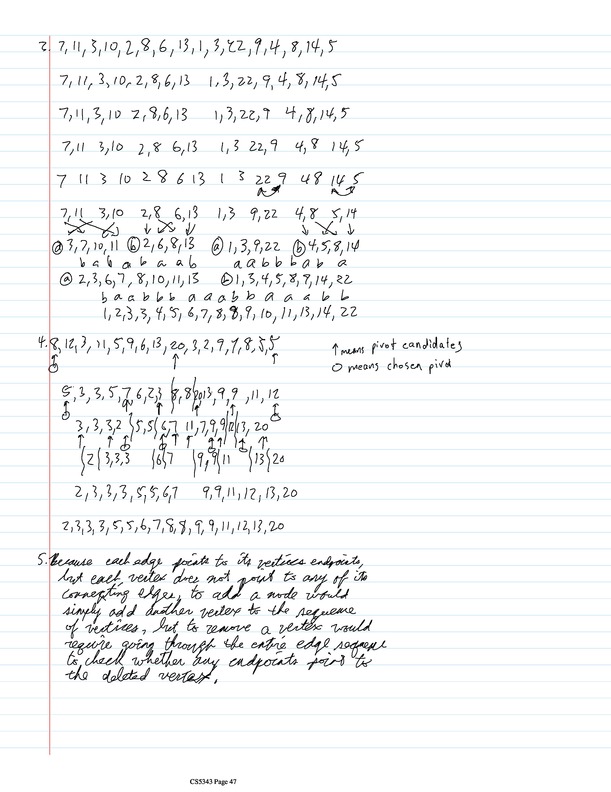 2. 7, 11, 3, 10, 2, 8, 6, 13, 1, 3, 22, 9, 4, 8, 14, 5
7, 11, 3, 10, 2, 8, 6, 13 1, 3, 22, 9, 4, 8, 14, 5
7, 11, 3, 10 2, 8, 6, 13 1, 3, 22, 9 4, 8, 14, 5
7, 11 3, 10 2, 8 6, 13 1, 3 22, 9 4, 8 14, 5
7 11 3 10 2 8 6 13 1 3 22 9 4 8 14 5
7, 11 3, 10 2, 8 6, 13 1, 3 9, 22 4, 8 5, 14
ⓐ 3, 7, 10, 11 ⓑ 2, 6, 8, 13 ⓐ 1, 3, 9, 22 ⓑ 4, 5, 8, 14
b a b a b a a b a a b b b a b a
ⓐ 2, 3, 6, 7, 8, 10, 11, 13 ⓑ 1, 3, 4, 5, 8, 9, 14, 22
b a a b b b a a a b b a a a b b
1, 2, 3, 3, 4, 5, 6, 7, 8, 8, 9, 10, 11, 13, 14, 22
4. 8, 12, 3, 11, 5, 9, 6, 13, 20, 3, 2, 9, 7, 8, 3, 5
↑ means pivot candidates
O means chosen pivot
5, 3, 3, 5, 7, 6, 2, 3 | 8, 8 | 20, 13, 9, 9, 11, 12
3, 3, 3, 2 | 5, 5 | 6, 7 11, 7, 9, 9 | 12 | 13, 20
| 2 | 3, 3, 3 | 6 | 7 | 9, 9 | 11 | 13 | 20
2, 3, 3, 3, 5, 5, 6, 7 9, 9, 11, 12, 13, 20
2, 3, 3, 3, 5, 5, 6, 7, 8, 8, 9, 9, 11, 12, 13, 20
5. Because each edge points to its vertices endpoints,
but each vertex does not point to any of its
connecting edges, to add a node would
simply add another vertex to the sequence
of vertices, but to remove a vertex would
require going through the entire edge sequence
to check whether any endpoints point to
the deleted vertex.
CS5343 Page 47